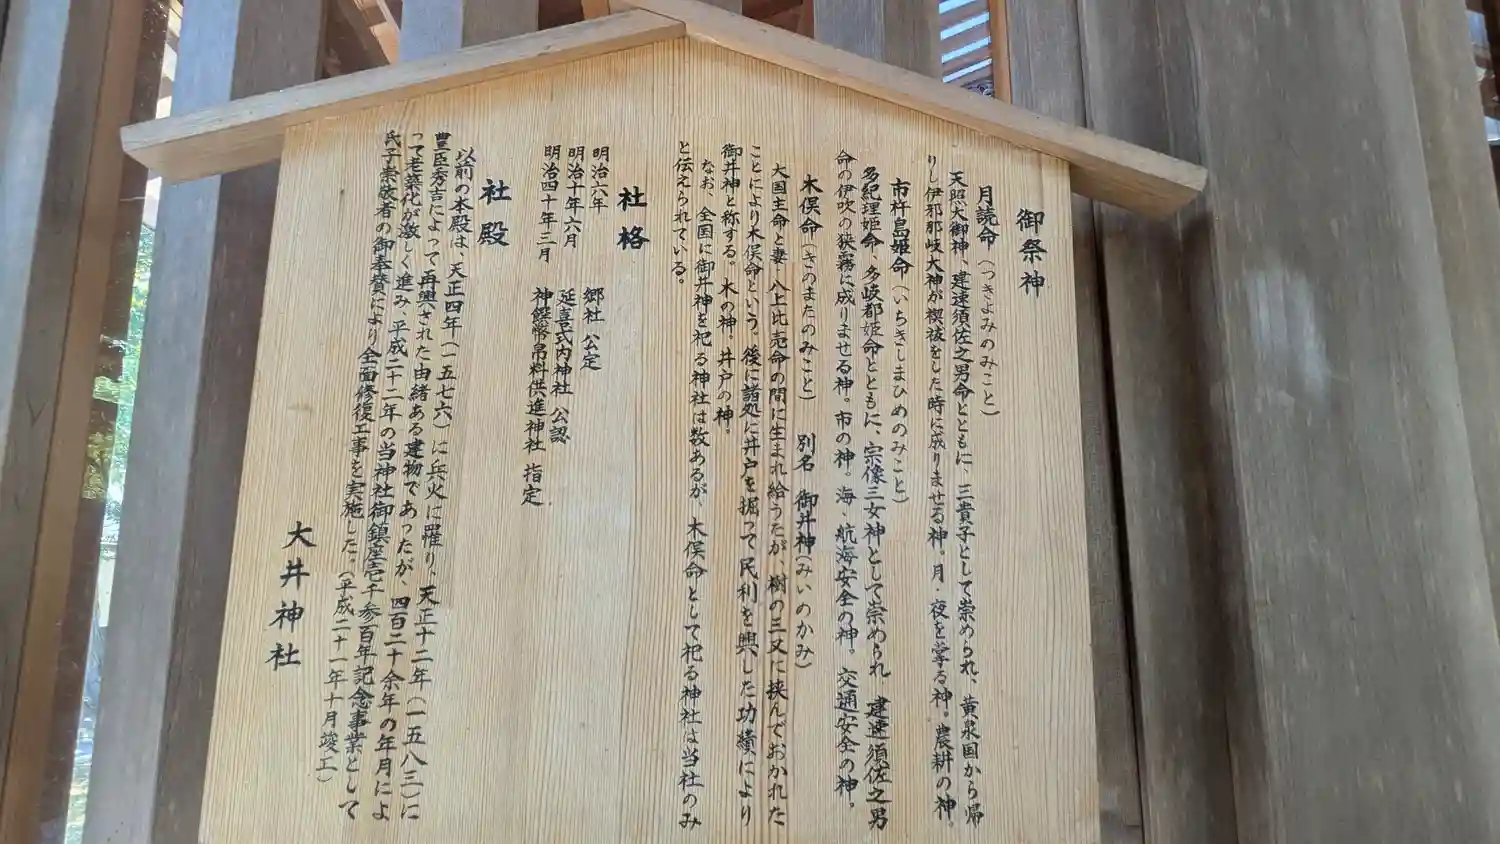 御祭神
月読命(つきよみのみこと)
天照大御神、建速須佐之男命とともに、三貴子として崇められ、黄泉国から帰
りし伊邪那岐大神が禊祓をした時に成りませる神。月・夜を掌る神。農耕の神。
市杵島姫命(いちきしまひめのみこと)
多紀理姫命、多岐都姫命とともに、宗像三女神として崇められ 建速須佐之男
命の伊吹の狭霧に成りませる神。市の神。海・航海安全の神。交通安全の神。
木俣命(きのまたのみこと) 別名 御井神(みいのかみ)
大国主命と妻・八上比売命の間に生まれ給うたが、樹の三又に挟んでおかれた
ことにより木俣命という。後に諸処に井戸を掘って民利を興した功績により
御井神と称する。木の神。井戸の神。
なお、全国に御井神を祀る神社は数あるが、木俣命として祀る神社は当社のみ
と伝えられている。
社格
明治六年 郷社 公定
明治十年六月 延喜式内神社 公認
明治四十年三月 神饌幣帛料供進神社 指定
社殿
以前の本殿は、天正四年(一五七六)に兵火に罹り、天正十二年(一五八三)に
豊臣秀吉によって再興された由緒ある建物であったが、四百二十余年の年月によ
って老築化が激しく進み、平成二十二年の当神社御鎮座壱千参百年記念事業として
氏子崇敬者の御奉賛により全面修復工事を実施した。(平成二十一年十月竣工)
大井神社